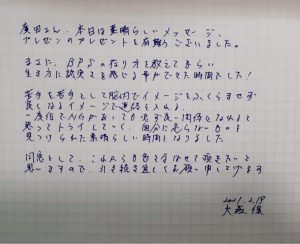 廣田さん、本日は素晴らしいメッセージ、
プレゼンのプレゼントを有難うございました。
まさに、BPSの在り方を教えてもらい
生き方に誠実さを感じる事ができた時間でした!
苦手を苦手として脳内でイメージをふくらませず
良くなるイメージで連絡を入れる。
一度位でNGがあっても必ず良い関係になれると
思ってトライしていく、自分に足らないものが
見つけられた素晴らしい時間となりました。
同志として、これからも力を合わせて頂きたいと
思いますので、引き続き宜しくお願い申し上げます
2021.2.19
大森 保